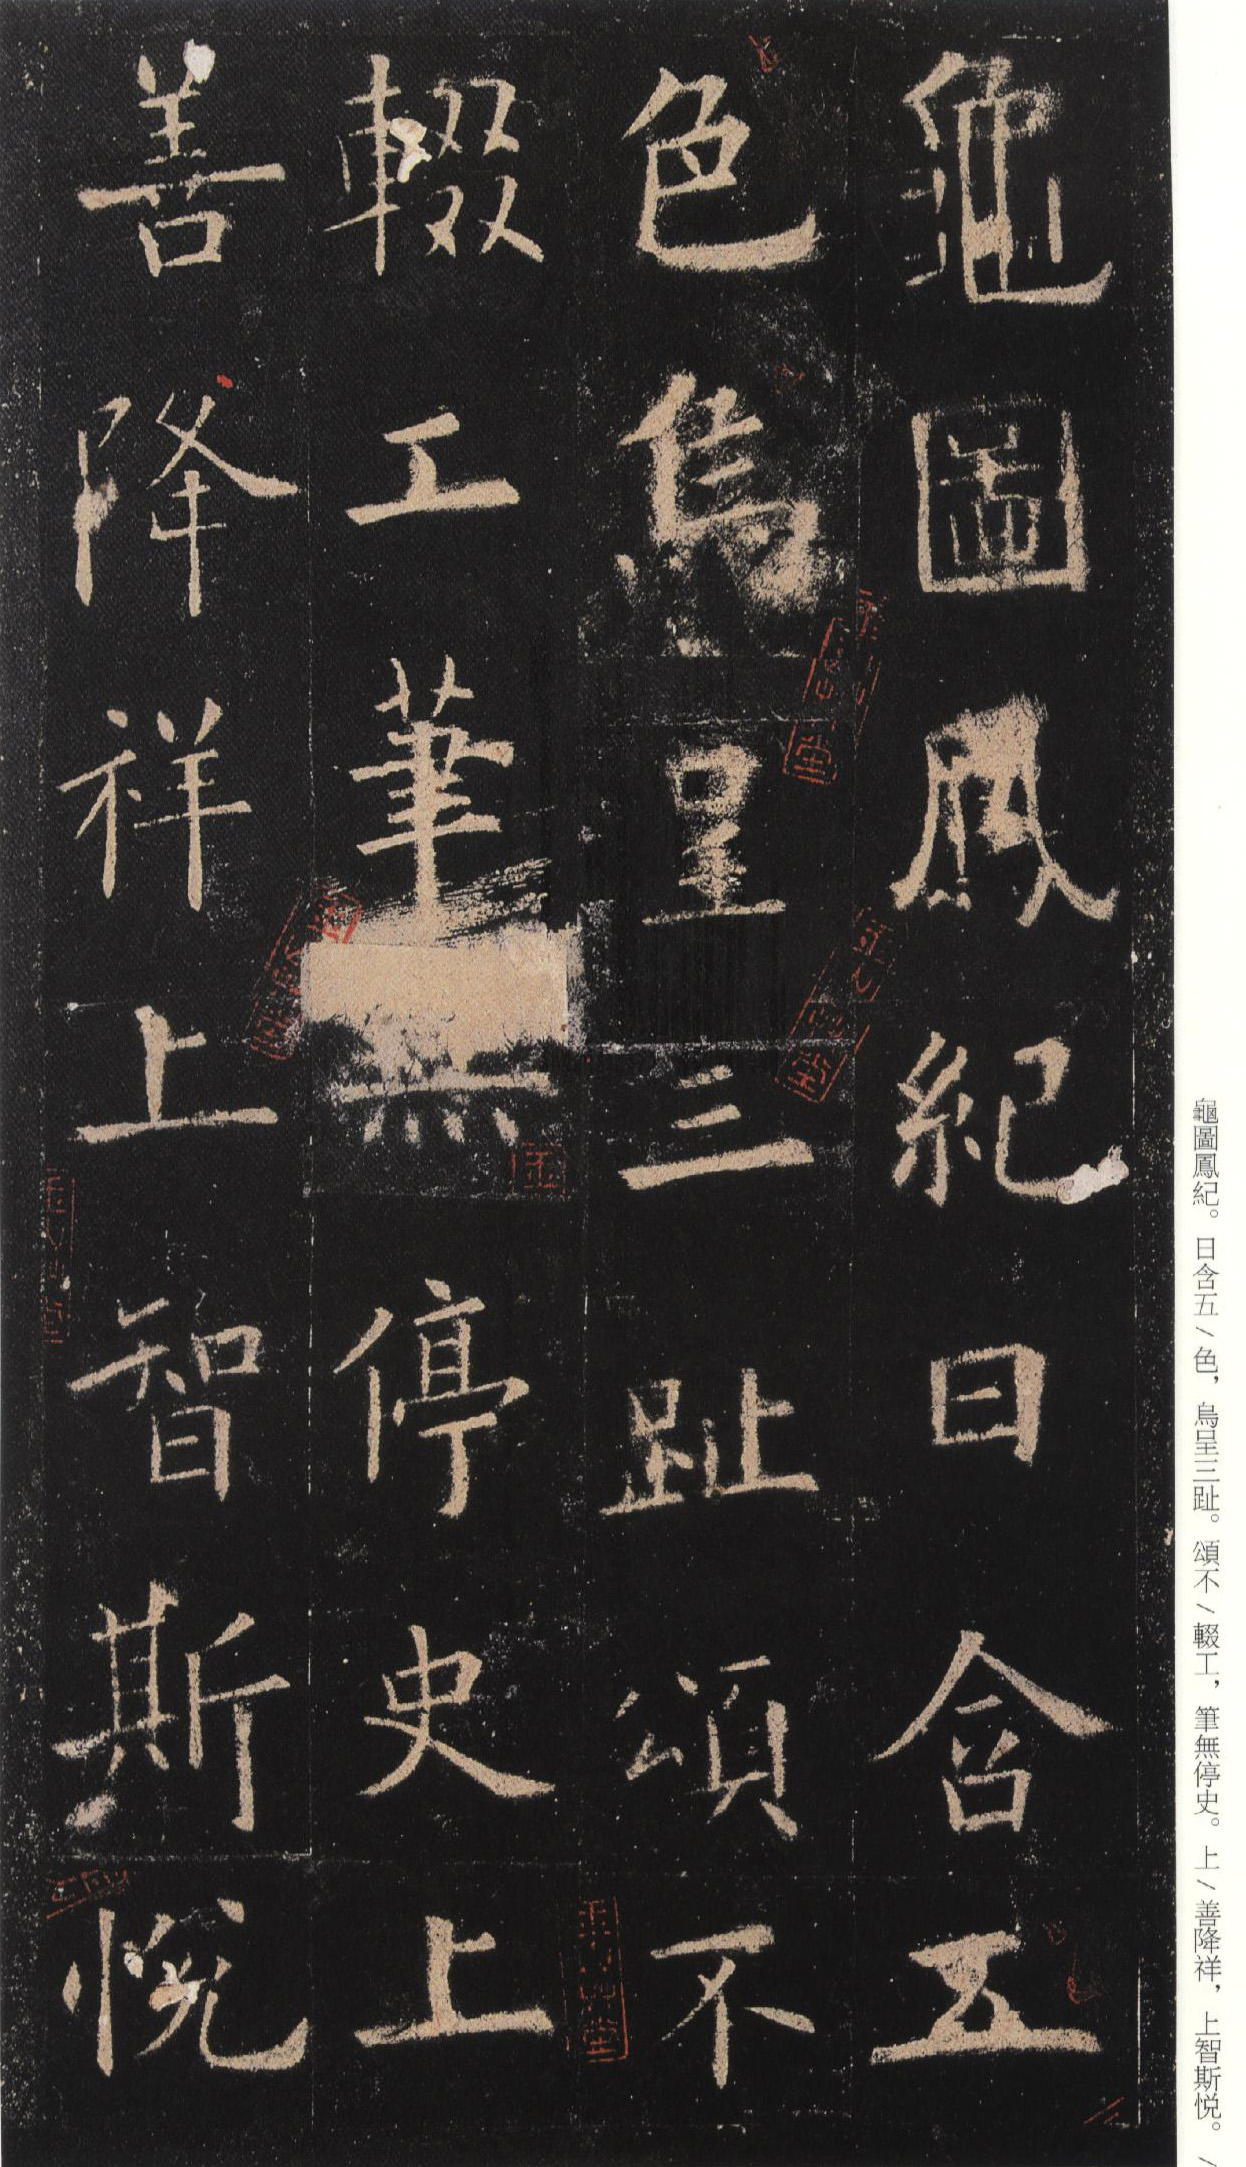 龜圖鳳紀日含五
色烏呈三趾頌不
輟工筆無停史上
善降祥上智斯悅
龜圖鳳紀。日含五/色，烏呈三趾。頌不/輟工，筆無停史。上/善降祥，上智斯悅。/